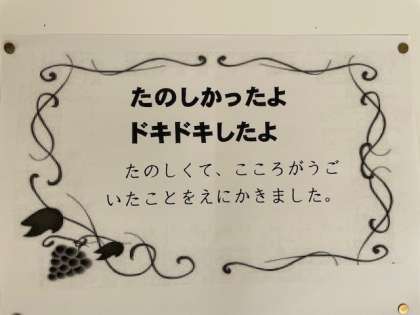 たのしかったよ
ドキドキしたよ
たのしくて、こころがうご
いたことをえにかきました。